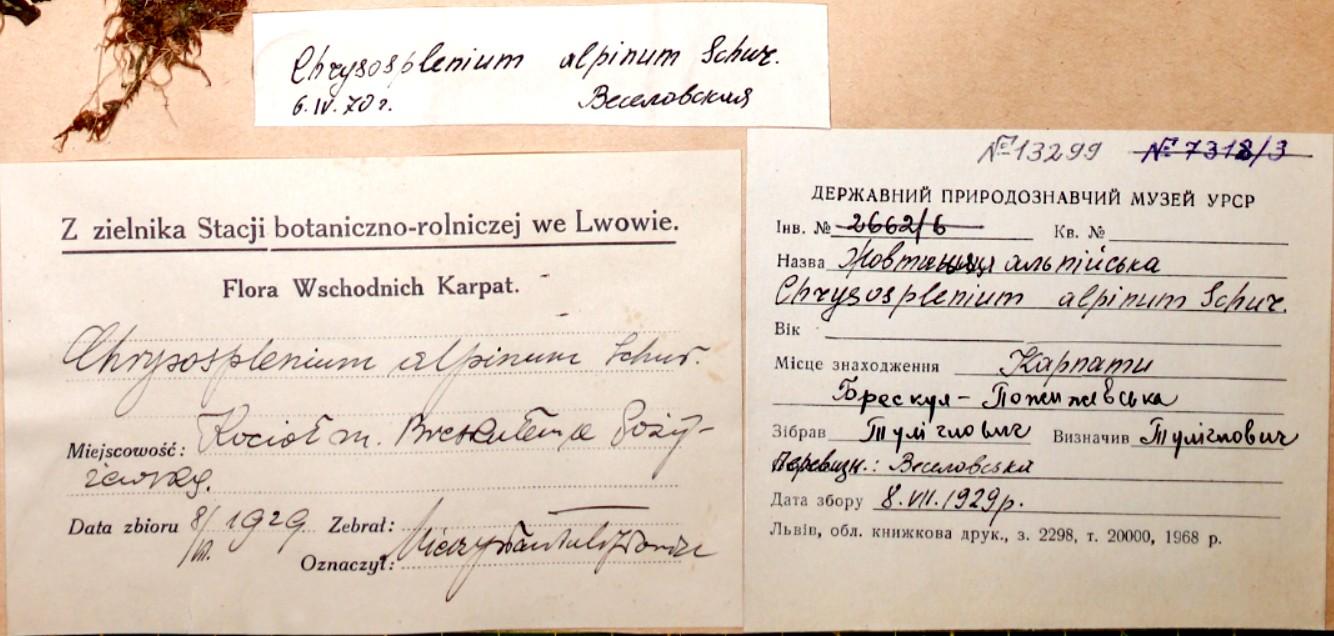 Chrysosplenium alpinum Schur.
6.IV.70 г. Веселовская
Z zielnika Stacji botaniczno-rolniczej we Lwowie.
Flora Wschodnich Karpat.
Chrysosplenium alpinum Schur.
Miejscowość: Kocioł m. Breskułem a Poży-
żewską.
Data zbioru 8/VII. 1929 Zebrał:
Oznaczył: Mieczysław
№13299 №7318/3
ДЕРЖАВНИЙ ПРИРОДОЗНАВЧИЙ МУЗЕЙ УРСР
Інв. № 2662/6 Кв. №
Назва Жовтяниця альпійська
Chrysosplenium alpinum Schur.
Вік
Місце знаходження Карпати
Брескул - Пожижевська
Зібрав Туліглович Визначив Туліглович
Перевизн.: Веселовська
Дата збору 8.VII.1929р.
Львів, обл. книжкова друк., з. 2298, т. 20000, 1968 р.